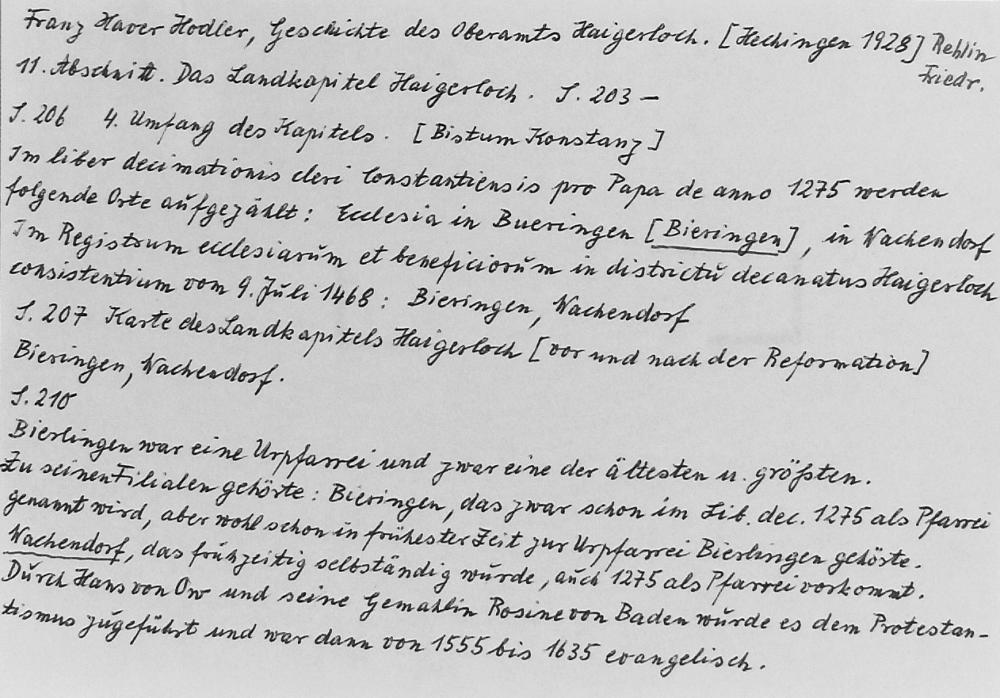 Franz Xaver Hodler, Geschichte des Oberamts Haigerloch. [Hechingen 1928] Rehlin
Friedr.
11. Abschnitt. Das Landkapitel Haigerloch. S. 203 –
S. 206 4. Umfang des Kapitels. [Bistum Konstanz]
Im liber decimationis cleri Constantiensis pro Papa de anno 1275 werden
folgende Orte aufgezählt: Ecclesia in Bueringen [Bieringen], in Wachendorf
Im Registrum ecclesiarum et beneficiorum in districtu decanatus Haigerloch
consistentium vom 9. Juli 1468: Bieringen, Wachendorf
S. 207 Karte des Landkapitels Haigerloch [vor und nach der Reformation]
Bieringen, Wachendorf.
S. 210
Bierlingen war eine Urpfarrei und zwar eine der ältesten u. größten.
Zu seinen Filialen gehörte: Bieringen, das zwar schon im Lib. dec. 1275 als Pfarrei
genannt wird, aber wohl schon in frühester Zeit zur Urpfarrei Bierlingen gehörte.
Wachendorf, das frühzeitig selbständig wurde, auch 1275 als Pfarrei vorkommt.
Durch Hans von Ow und seine Gemahlin Rosine von Baden wurde es dem Protestan-
tismus zugeführt und war dann von 1555 bis 1635 evangelisch.